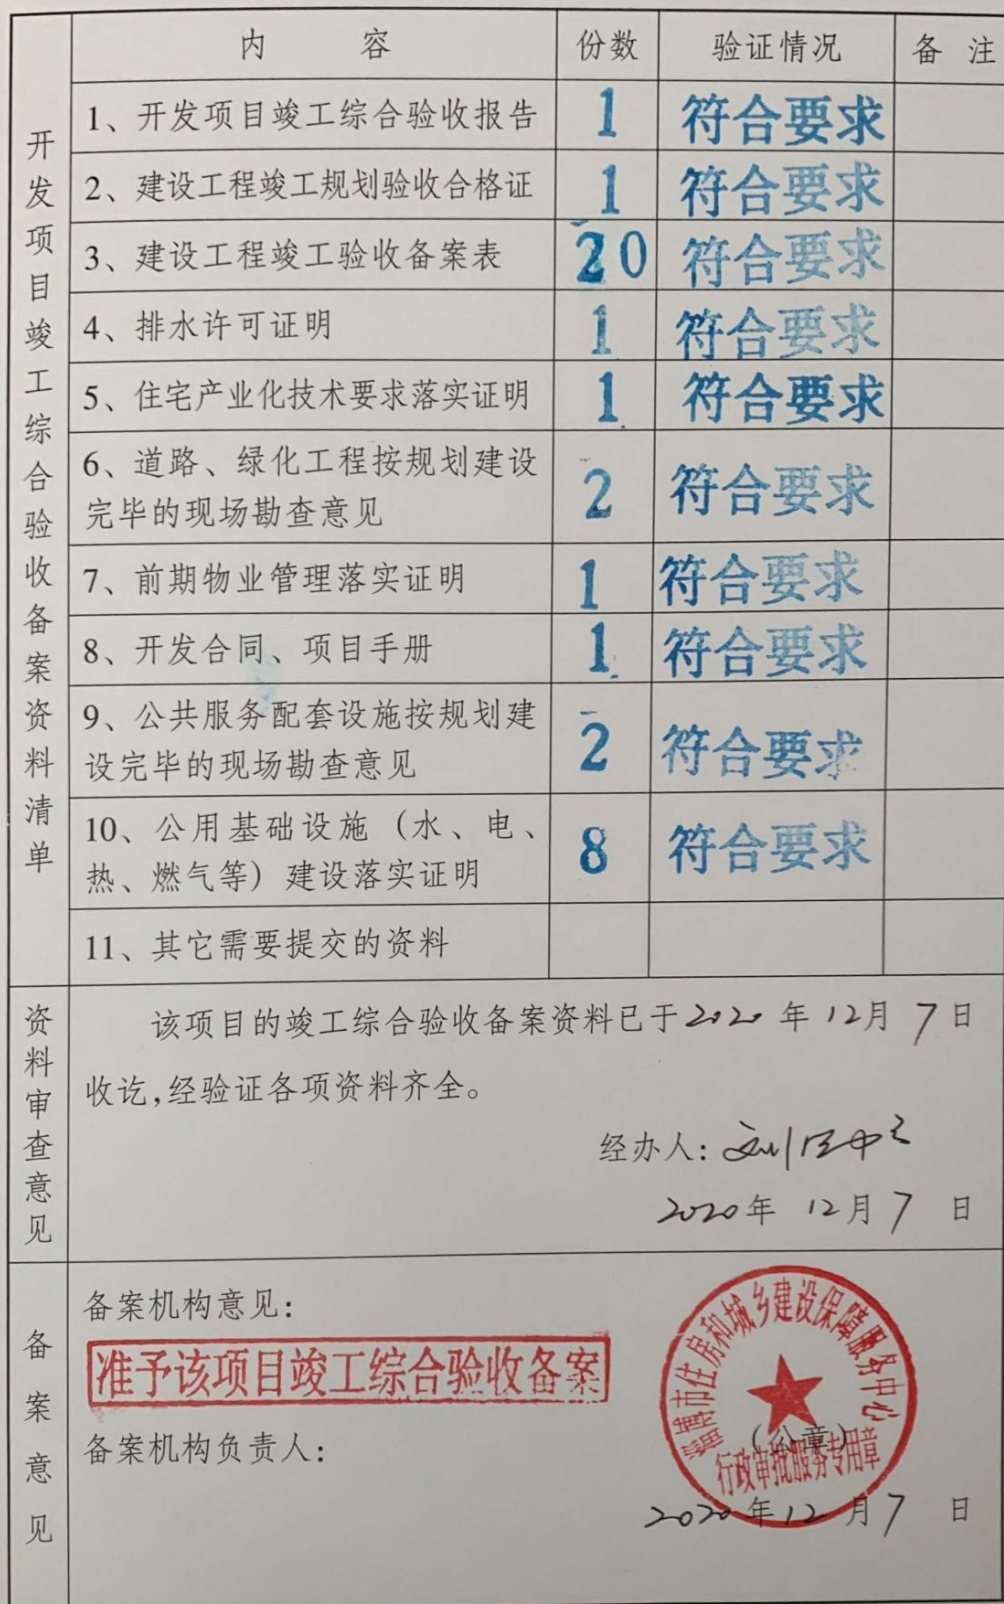 内 容 份数 验证情况 备 注
开发项目竣工综合验收备案资料清单
1、开发项目竣工综合验收报告 1 符合要求
2、建设工程竣工规划验收合格证 1 符合要求
3、建设工程竣工验收备案表 20 符合要求
4、排水许可证明 1 符合要求
5、住宅产业化技术要求落实证明 1 符合要求
6、道路、绿化工程按规划建设
完毕的现场勘查意见 2 符合要求
7、前期物业管理落实证明 1 符合要求
8、开发合同、项目手册 1 符合要求
9、公共服务配套设施按规划建
设完毕的现场勘查意见 2 符合要求
10、公用基础设施（水、电、
热、燃气等）建设落实证明 8 符合要求
11、其它需要提交的资料
资料审查意见
该项目的竣工综合验收备案资料已于2020年12月7日
收讫,经验证各项资料齐全。
经办人: 刘
2020年 12月7 日
备案意见
备案机构意见:
准予该项目竣工综合验收备案
备案机构负责人:
淄博市住房和城乡建设保障服务中心
（公章）
行政审批服务专用章
2020年12月7 日